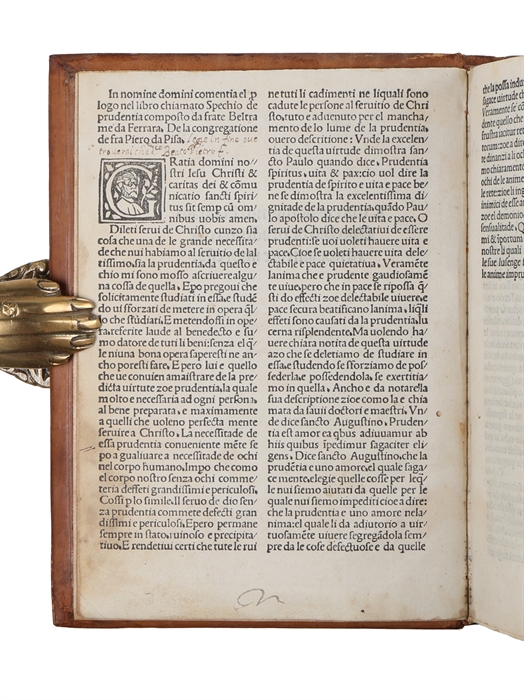 In nomine domini comentia el ꝓ
logo nel libro chiamato Spechio de
prudentia composto da frate Beltra
me da Ferrara. De la congregatione
de fra Piero da Pisa.
GRatia domini no/
stri Iesu Christi &
caritas dei & cõmu
nicatio sancti spiri
tus sit semp cũ om
nibus uobis amen.
Dileti serui de Christo cunzo sia
cosa che una de le grande necessita/
de che nui habiamo al seruitio de lal
tissimo, sia la prudentia, da questo e
chio mi sono mosso ascriuere algu/
na cossa de quella. Epo pregoui che
solicitamente studiati in essa, & studẽ
do ui sforzati de metere in opera ql/
lo che studiati. E metendossi in ope
ra, referite laude al benedecto e su
mo datore de tuti li beni: senza el q̃
le niuna bona opera saperesti ne an
cho poresti fare. E pero lui e quello
che ue conuien amaistrare de la pre
dicta uirtute zoe prudentia, la quale
molto e necessaria ad ogni persona,
al bene preparata, e maximamente
a quelli che uoleno perfecta mente
seruire a Christo. La necessitade de
essa prudentia conueniente mẽte se
po agualiuare a necessitade de ochi
nel corpo humano. Impo che como
el corpo nostro senza ochi comme/
teria deffeti grandissimi e periculosi,
Cossi p lo simile. Il seruo de dio sen/
za prudentia commete defecti gran
dissimi e periculosi, Epero permane
sempre in stato, ruinoso e precipita/
tiuo. E rendetiui certi che tute le rui
ne tuti li cadimenti ne liquali sono
cadute le persone al seruitio de Chri
sto, tuto e aduenuto per el mancha/
mento de lo lume de la prudentia,
ouero descritione: Vnde la excelen/
tia di questa uirtude dimostra san/
cto Paulo quando dice. Prudentia
spiritus, uita & pax: cio uol dire la
prudentia de spirito e uita e pace be
ne se dimostra la excelentissima di/
gnitade de la prudentia, quãdo Pau/
lo apostolo dice che le uita e pace. O
serui de Christo delectatiui de essere
prudenti: se uoi uoleti hauere uita e
pace. Cioe se uoleti hauere uita dele/
ctabile e pace quietatiua. Veramẽte
lanima che e prudente gaudiosamẽ
te uiue, pero che in pace se ripossa q̃
sti do effecti zoe delectabile uiuere, e
pace secura beatificano lanima, liq̃li
effeti sono causati da la prudentia, lu
cerna risplendente. Ma uolendo ha/
uere chiara notita de questa uirtude
azo che se deletiamo de studiare in
essa, e studendo se sforziamo de pos/
sederla, e possedendola, se exertitia/
mo in quella. Ancho e da notaresla
sua descriptione zioe como la e chia
mata da sauii doctori e maestri. Vn/
de dice sancto Augustino. Pruden/
tia est amor ea q̃bus adiuuamur ab
hiis quibus ipedimur sagaciter eli/
gens. Dice sancto Augustino, che la
prudẽtia e uno amore, el quale saga/
ce mente, elegie quelle cosse per leq̃
le nui siemo aiutati da quelle per le
quale nui siemo impediti cioe a dire:
che la prudentia e uno amore nela/
nima: el quale li da adiutorio a uir/
tuosamẽte uiuere segregãdola sem/
pre da le cose defectuose e da quelle